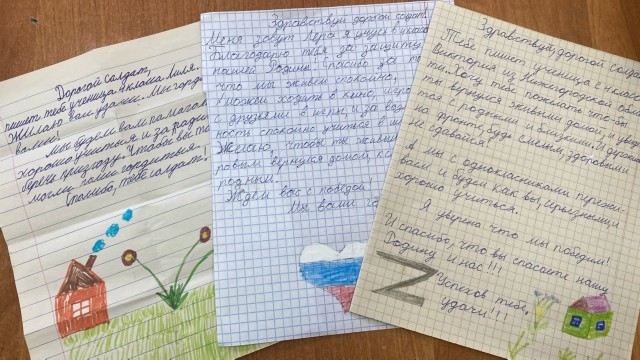 Дорогой солдат,
пишет тебе ученица 4 класса Лиля.
Желаю вам удачи. Мы гордимся
вами!
Мы будем вам помагать
хорошо учиться и за
беречь природу. Чтобы вы то
могли нами гордиться!
Спасибо, тебе солдат!
Здравствуй дорогой солдат!
Меня зовут Лера я учусь в 4 классе
Благодарю тебя за защиту
нашей Родины! Спасибо за то
что мы живем спокойно,
можем ходить в кино,
с друзьями в игры, и за
ность спокойно учиться в
Желаю, чтобы ты живым
ровым вернулся домой, к
родным.
Ждем вас с победой!
Мы вами го
Здравствуй, дорогой солда
Тебе пишет ученица 4 класса
Виктория из Нижегородской об
ти. Хочу тебе пожелать что-бы
ты вернулся живым домой, увид
с родными и близкими. И друзья
на фронте, будь смелым, здоровым и
не сдавайся!
А мы с одноклассниками пережи-
ваем и будем как вы, серьёзными и
хорошо учиться.
Я уверена что мы победим!
И спасибо, что вы спасаете нашу
Родину и нас!!!
Z
Успехов тебе,
удачи!!!